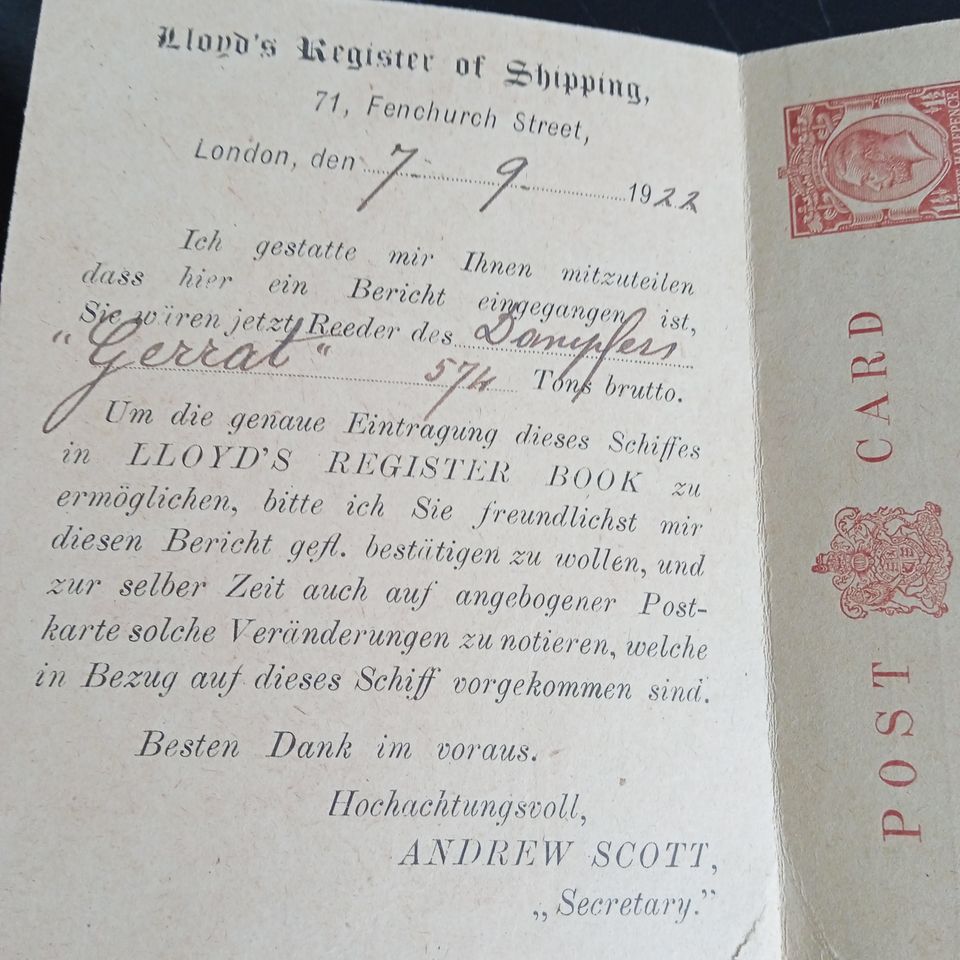 Lloyd's Register of Shipping,
71, Fenchurch Street,
London, den 7. 9. 1922
Ich gestatte mir Ihnen mitzuteilen
dass hier ein Bericht eingegangen ist,
Sie wären jetzt Reeder des Dampfers
"Gerrat" 574 Tons brutto.
Um die genaue Eintragung dieses Schiffes
in LLOYD'S REGISTER BOOK zu
ermöglichen, bitte ich Sie freundlichst mir
diesen Bericht gefl. bestätigen zu wollen, und
zur selber Zeit auch auf angebogener Post-
karte solche Veränderungen zu notieren, welche
in Bezug auf dieses Schiff vorgekommen sind.
Besten Dank im voraus.
Hochachtungsvoll,
ANDREW SCOTT,
„Secretary.”
POST CARD
1½
HALFPENCE
1½